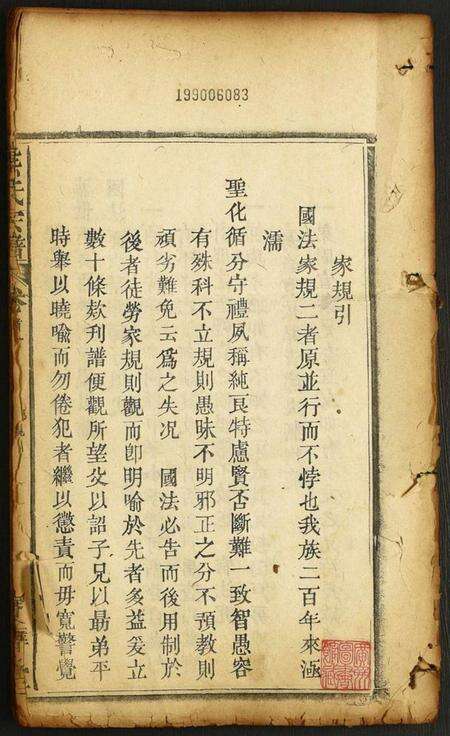 199006083
家規引
國法家規二者原並行而不悖也我族二百年來涵
濡
聖化循分守禮夙稱純良特慮賢否斷難一致智愚容
有殊科不立規則愚昧不明邪正之分不預教則
頑劣難免云爲之失况　國法必告而後用制於
後者徒勞家規則觀而卽明喻於先者多益爰立
數十條欵刋譜便觀所望父以詔子兄以勗弟平
時舉以曉喻而勿倦犯者繼以懲責而毋寬警覺
氏宗譜